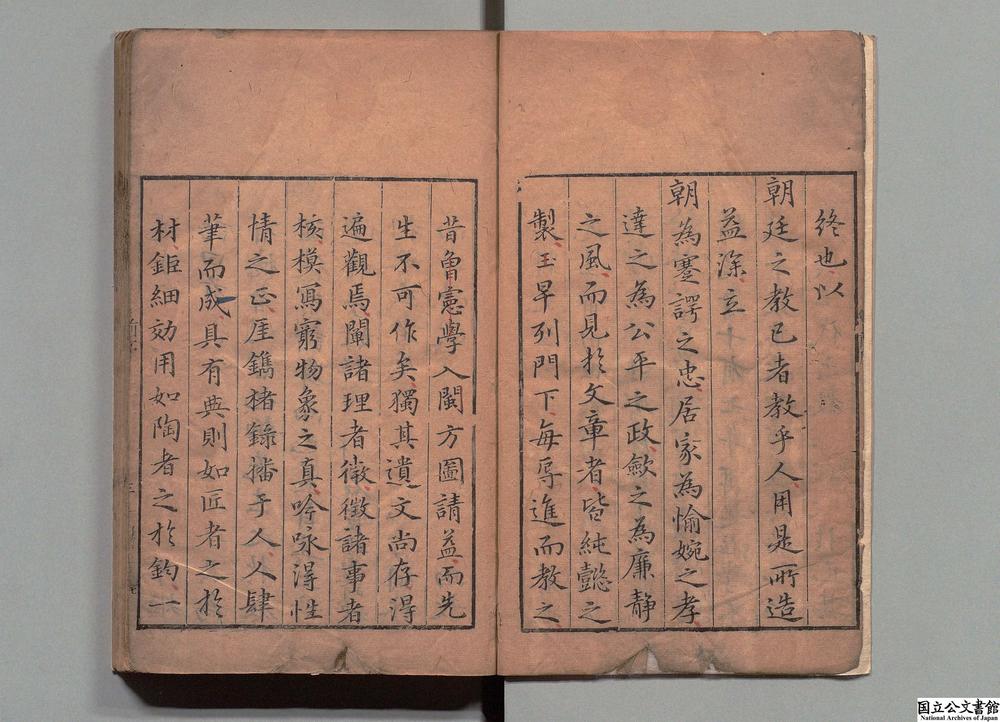 終也以
朝廷之教已者教乎人用是所造
益深立
朝為蹇諤之忠居家為愉婉之孝
達之為公平之政歛之為廉靜
之風而見於文章者皆純懿之
製玉早列門下每辱進而教之
昔曾憲學入閩方圖請益而先
生不可作矣獨其遺文尚存得
遍觀焉闡諸理者徴徵諸事者
核模寫窮物象之真吟咏得性
情之正厓鐫楮錄播于人人肆
筆而成具有典則如匠者之於
材鉅細効用如陶者之於鈞一
国立公文書館
National Archives of Japan